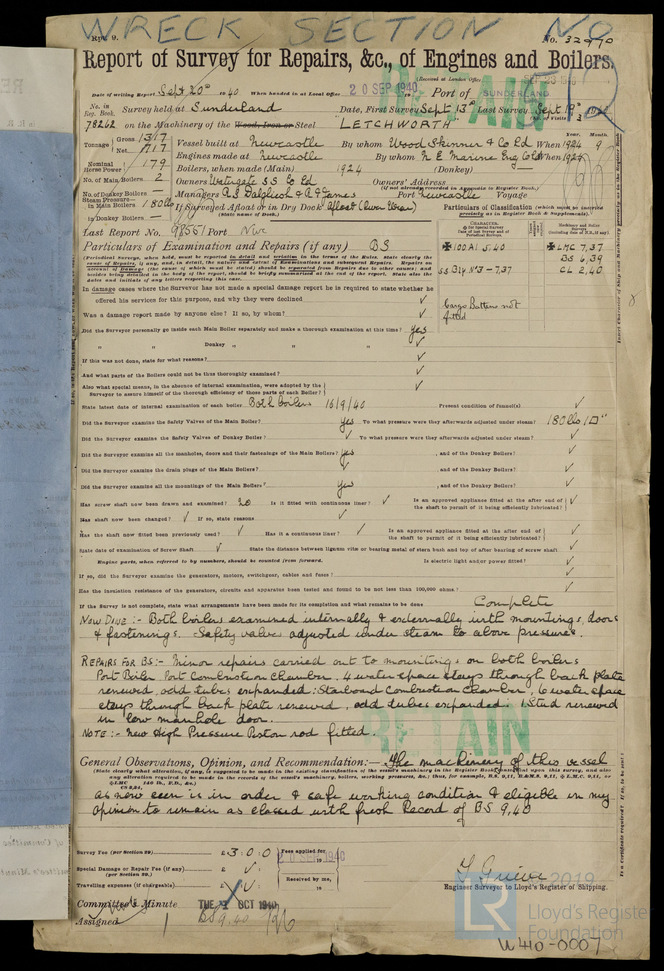 WRECK SECTION NO
Rpt. 9.
No. 32990
Report of Survey for Repairs, &c., of Engines and Boilers.
(Received at London Office
Date of writing Report Sept 20th 1940 When handed in at Local Office 20 SEP 1940 Port of SUNDERLAND
No. in Reg. Book. Survey held at Sunderland Date, First Survey Sept 13th Last Survey Sept 19th 1940
78262 on the Machinery of the Wood, Iron or Steel "LETCHWORTH"
Tonnage Gross 1317 Net 717 Vessel built at Newcastle By whom Wood Skinner & Co Ld When 1924 9
Nominal Horse Power 179 Engines made at Newcastle By whom N. E. Marine Eng Co Ld When 1924
No. of Main Boilers 2 Boilers, when made (Main) 1924 (Donkey)
Owners Watergate S.S. Co Ld Owners' Address
(If not already recorded in Appendix to Register Book.)
No. of Donkey Boilers — Managers R. S. Dalgliesh & R. I. James Port Newcastle Voyage
Steam Pressure— in Main Boilers 180 lbs If Surveyed Afloat or in Dry Dock Afloat (River Wear)
(State name of Dock.)
in Donkey Boilers —
Last Report No. 98551 Port Nwc
Particulars of Classification (which must be inserted precisely as in Register Book & Supplements).
Particulars of Examination and Repairs (if any) BS
+100A1 5.40
SS Bly No 3 - 7,37
+LMC 7,37
BS 6.39
CL 2,40
Cargo Battens not
fitted
In damage cases where the Surveyor has not made a special damage report he is required to state whether he
offered his services for this purpose, and why they were declined ✓
Was a damage report made by anyone else? If so, by whom? ✓
Did the Surveyor personally go inside each Main Boiler separately and make a thorough examination at this time? yes
" " Donkey " " " ✓
If this was not done, state for what reasons? ✓
And what parts of the Boilers could not be thus thoroughly examined? ✓
Also what special means, in the absence of internal examination, were adopted by the
Surveyor to assure himself of the thorough efficiency of those parts of each Boiler? ✓
State latest date of internal examination of each boiler Both boilers 16/9/40 Present condition of funnel(s) ✓
Did the Surveyor examine the Safety Valves of the Main Boiler? yes To what pressure were they afterwards adjusted under steam? 180 lbs/□"
Did the Surveyor examine the Safety Valves of Donkey Boiler? ✓ To what pressure were they afterwards adjusted under steam? ✓
Did the Surveyor examine all the manholes, doors and their fastenings of the Main Boilers? yes , and of the Donkey Boilers? ✓
Did the Surveyor examine the drain plugs of the Main Boilers? ✓ , and of the Donkey Boilers? ✓
Did the Surveyor examine all the mountings of the Main Boilers? yes , and of the Donkey Boilers? ✓
Has screw shaft now been drawn and examined? no Is it fitted with continuous liner? ✓ Is an approved appliance fitted at the after end of the shaft to permit of it being efficiently lubricated? ✓
Has shaft now been changed? ✓ If so, state reasons ✓
Has the shaft now fitted been previously used? ✓ Has it a continuous liner? ✓ Is an approved appliance fitted at the after end of the shaft to permit of it being efficiently lubricated? ✓
State date of examination of Screw Shaft ✓ State the distance between lignum vitæ or bearing metal of stern bush and top of after bearing of screw shaft ✓
Engine parts, when referred to by numbers, should be counted from forward. Is electric light and/or power fitted? ✓
If so, did the Surveyor examine the generators, motors, switchgear, cables and fuses? ✓
Has the insulation resistance of the generators, circuits and apparatus been tested and found to be not less than 100,000 ohms? ✓
If the Survey is not complete, state what arrangements have been made for its completion and what remains to be done Complete
NOW DONE :- Both boilers examined internally & externally with mountings, doors
& fastenings. Safety valves adjusted under steam to above pressures.
REPAIRS FOR BS :- Minor repairs carried out to mountings on both boilers
Port Boiler Port Combustion Chamber. 4 water space stays through back plate
renewed, odd tubes expanded: Starboard Combustion Chamber, 6 water space
stays through back plate renewed, odd tubes expanded. 1 Stud renewed
in low manhole door.
NOTE :- New High Pressure Piston rod fitted.
RETAIN
General Observations, Opinion, and Recommendation:— The machinery of this vessel
as now seen is in order & safe working condition & eligible in my
opinion to remain as classed with fresh Record of BS 9,40
Survey Fee (per Section 29) £3 : 0 : 0 Fees applied for 20 SEP 1940
Special Damage or Repair Fee (if any) (per Section 29.) £ ✓
Travelling expenses (if chargeable) £ ✓ Received by me, 19
Engineer Surveyor to Lloyd's Register of Shipping.
Committee's Minute TUE. 1 OCT 1940
Assigned BS 9.40
2019
LR Lloyd's Register
Foundation
W410-0007